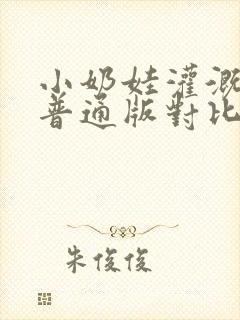 小奶娃灌溉
普通版對比
朱俊俊